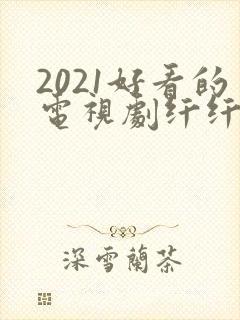 2021好看的
電視劇纤纤
深雪蘭茶